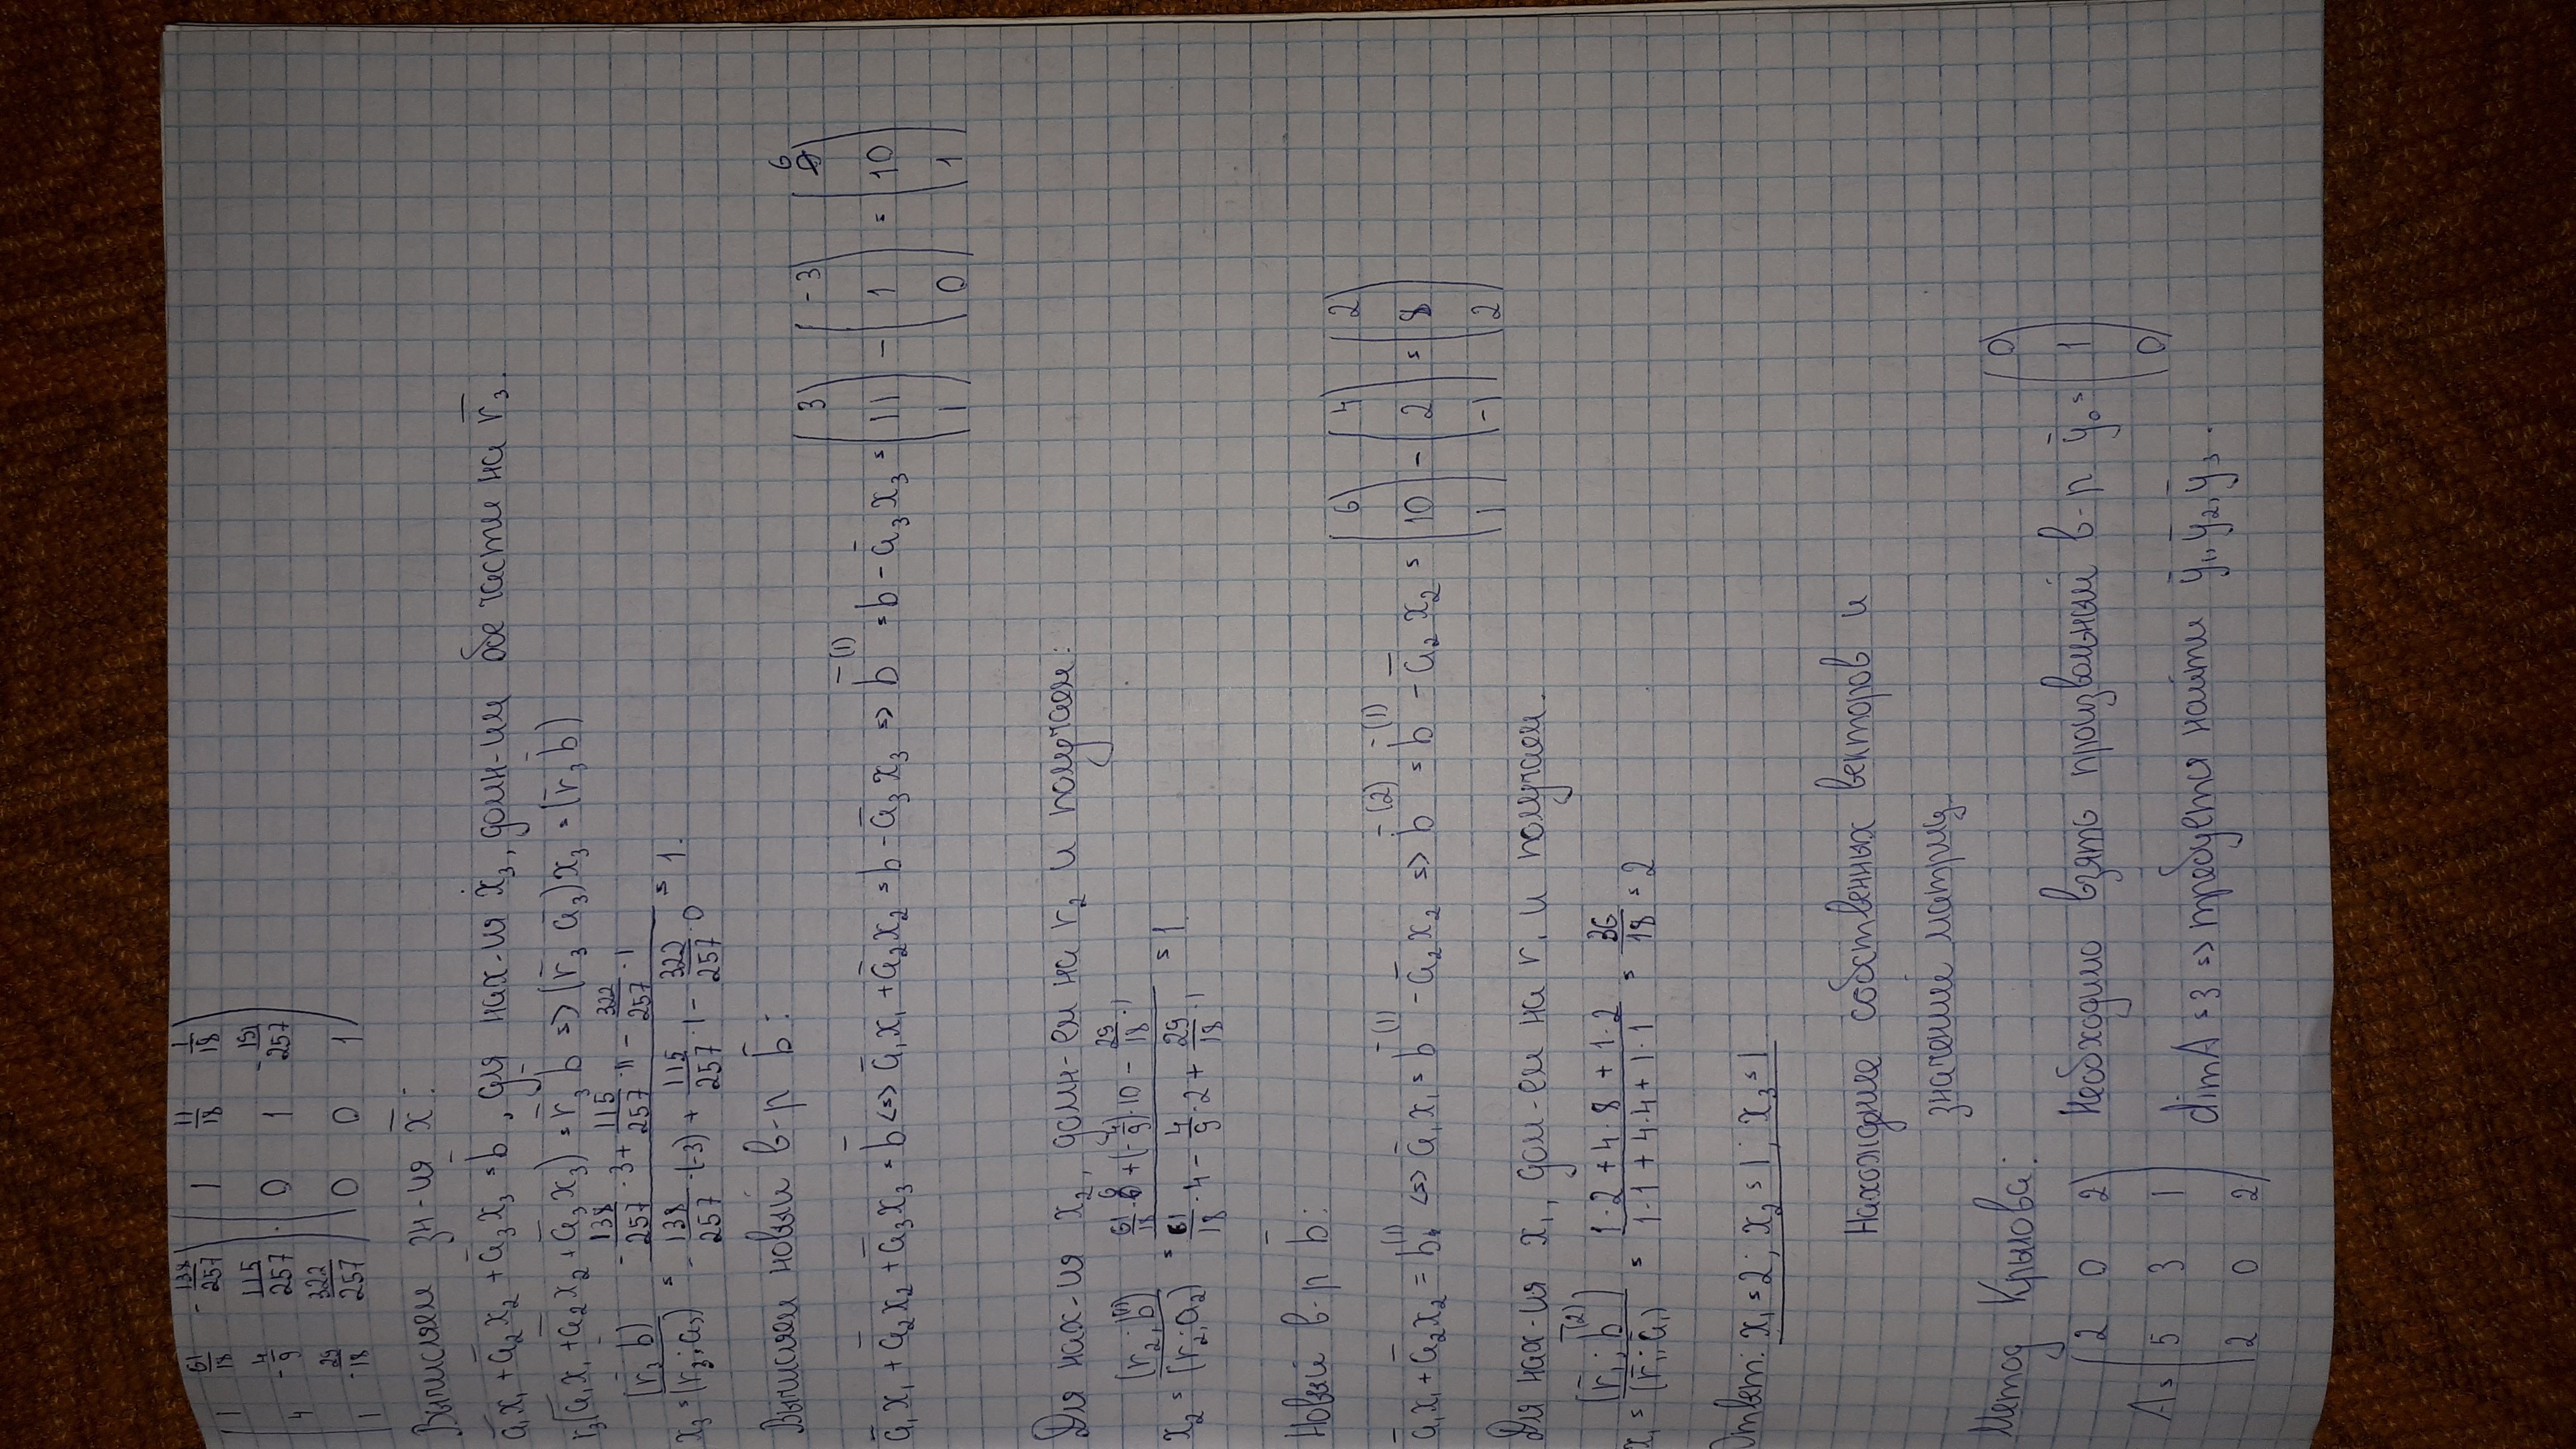 1 61/18 -138/257 | 1 11/18 1/18
4 -4/9 115/257 · 0 1 -191/257
1 -29/18 322/257 | 0 0 1
Вычисляем зн-ия x̄:
ā₁x₁ + ā₂x₂ + ā₃x₃ = b̄, для нах-ия x₃, домн-им обе части на r̄₃.
r₃(ā₁x₁ + ā₂x₂ + ā₃x₃) = r̄₃ b̄ => (r̄₃ ā₃)x₃ = (r̄₃ b̄)
x₃ = (r̄₃ b̄)/(r₃; a₃) = (-138/257 · 3 + 115/257 · 11 - 322/257 · 1)/(-138/257 · (-3) + 115/257 · 1 - 322/257 · 0) = 1.
Вычисляем новый в-р b̄:
ā₁x₁ + ā₂x₂ + ā₃x₃ = b̄ <=> ā₁x₁ + ā₂x₂ = b - ā₃x₃ => b̄⁽¹⁾ = b - ā₃x₃ = (3 11 1) - (-3 1 0) = (6 10 1)
Для нах-ия x₂, домн-ем на r₂ и получаем:
x₂ = (r₂; b̄⁽¹⁾)/(r₂; a₂) = (61/18 · 6 + (-4/9) · 10 - 29/18 · 1)/(61/18 · 4 - 4/9 · 2 + 29/18 · 1) = 1.
Новый в-р b̄:
ā₁x₁ + ā₂x₂ = b⁽¹⁾ <=> ā₁x₁ = b̄⁽¹⁾ - ā₂x₂ => b̄⁽²⁾ = b̄⁽¹⁾ - ā₂x₂ = (6 10 1) - (4 2 -1) = (2 8 2)
Для нах-ия x₁, дом-ем на r₁ и получаем.
x₁ = (r̄₁; b̄⁽²⁾)/(r̄₁; ā₁) = (1·2 + 4·8 + 1·2)/(1·1 + 4·4 + 1·1) = 36/18 = 2
Ответ: x₁ = 2; x₂ = 1; x₃ = 1
Нахождение собственных векторов и
значений матриц
Метод Крылова:
A = (2 0 2
5 3 1
2 0 2)
Необходимо взять произвольный в-р ȳ₀ = (0 1 0)
dim A = 3 => требуется найти ȳ₁, ȳ₂, ȳ₃.